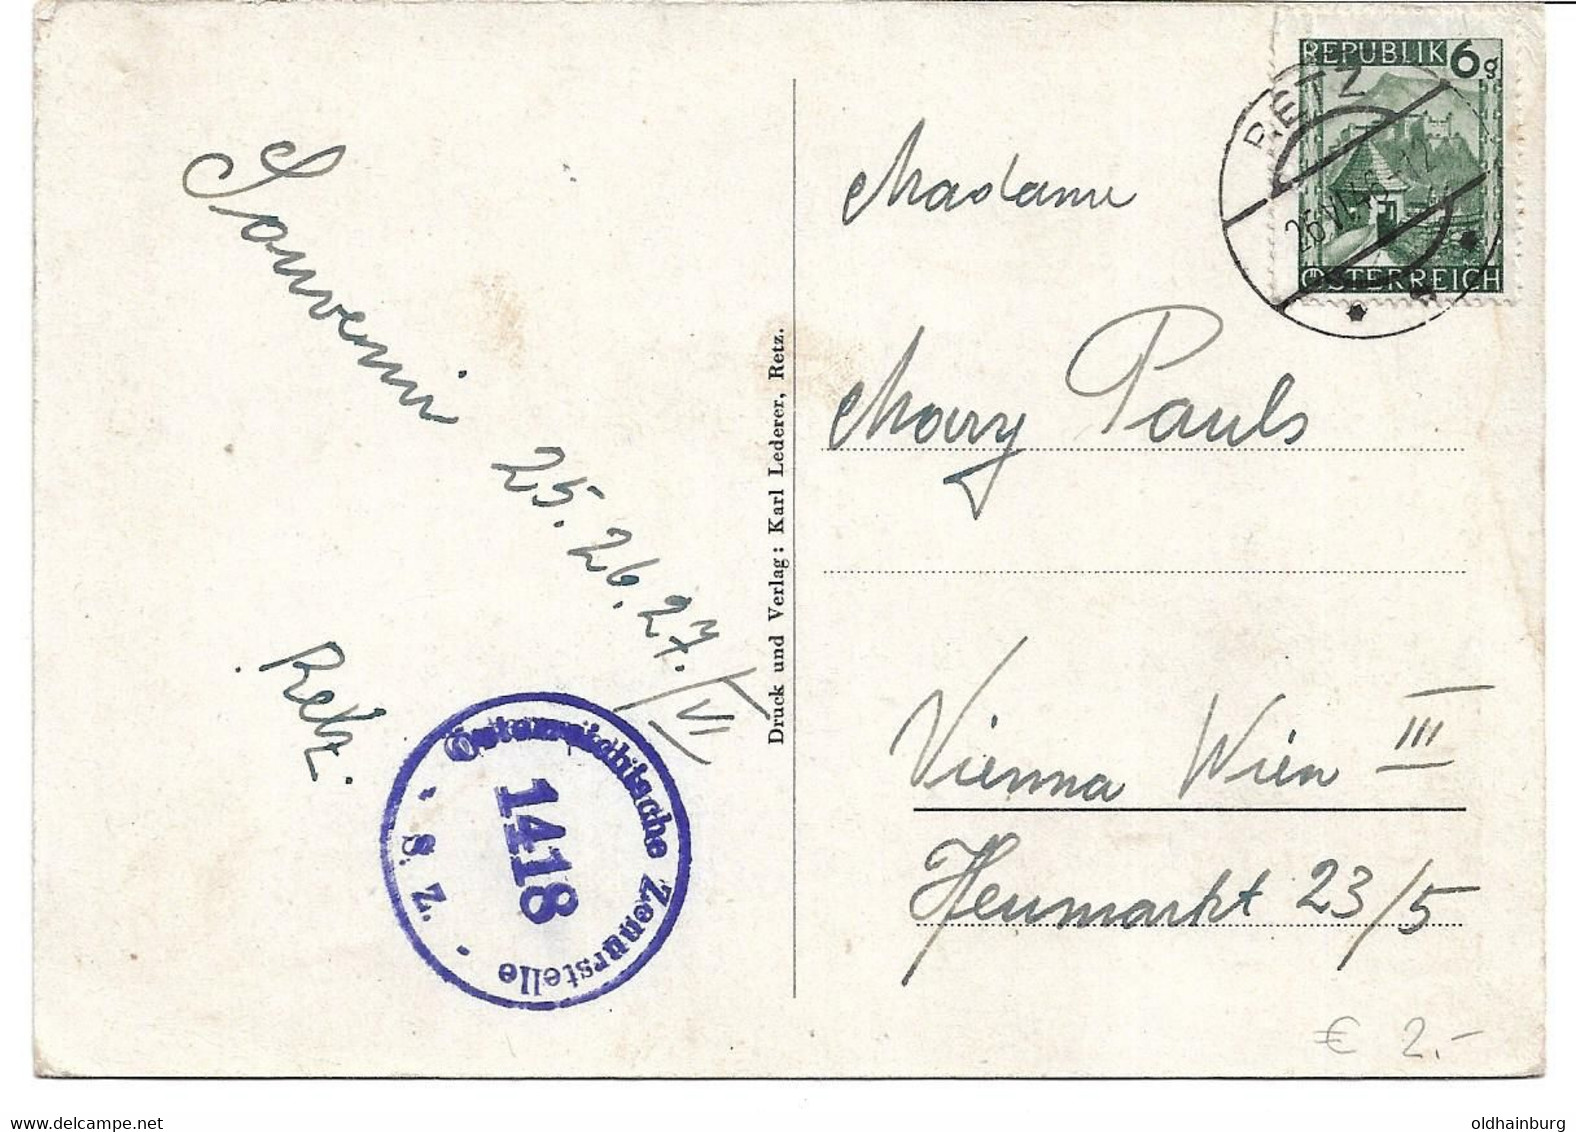 Souvenir
25. 26. 27./VI
Retz.
Österreichische Zensurstelle
1418
Z. S.
Druck und Verlag: Karl Lederer, Retz.
REPUBLIK 6g
ÖSTERREICH
RETZ
26.VI.46-12
Madame
Mary Pauls
Vienna Wien III
Heumarkt 23/5
€ 2.-
oldhainburg